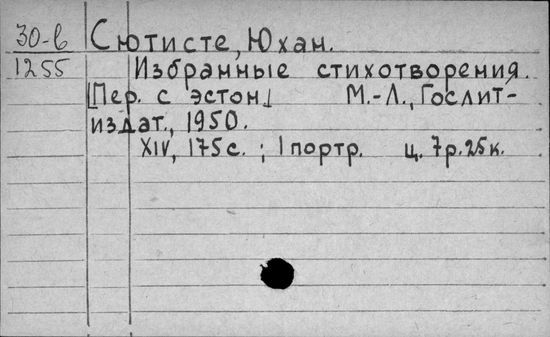 30-в Сютисте, Юхан.
1255 Избранные стихотворения.
[Пер. с эстон] М.-Л., Гослит-
издат., 1950.
XIV, 175с. ; 1 портр. ц. 7р.25к.